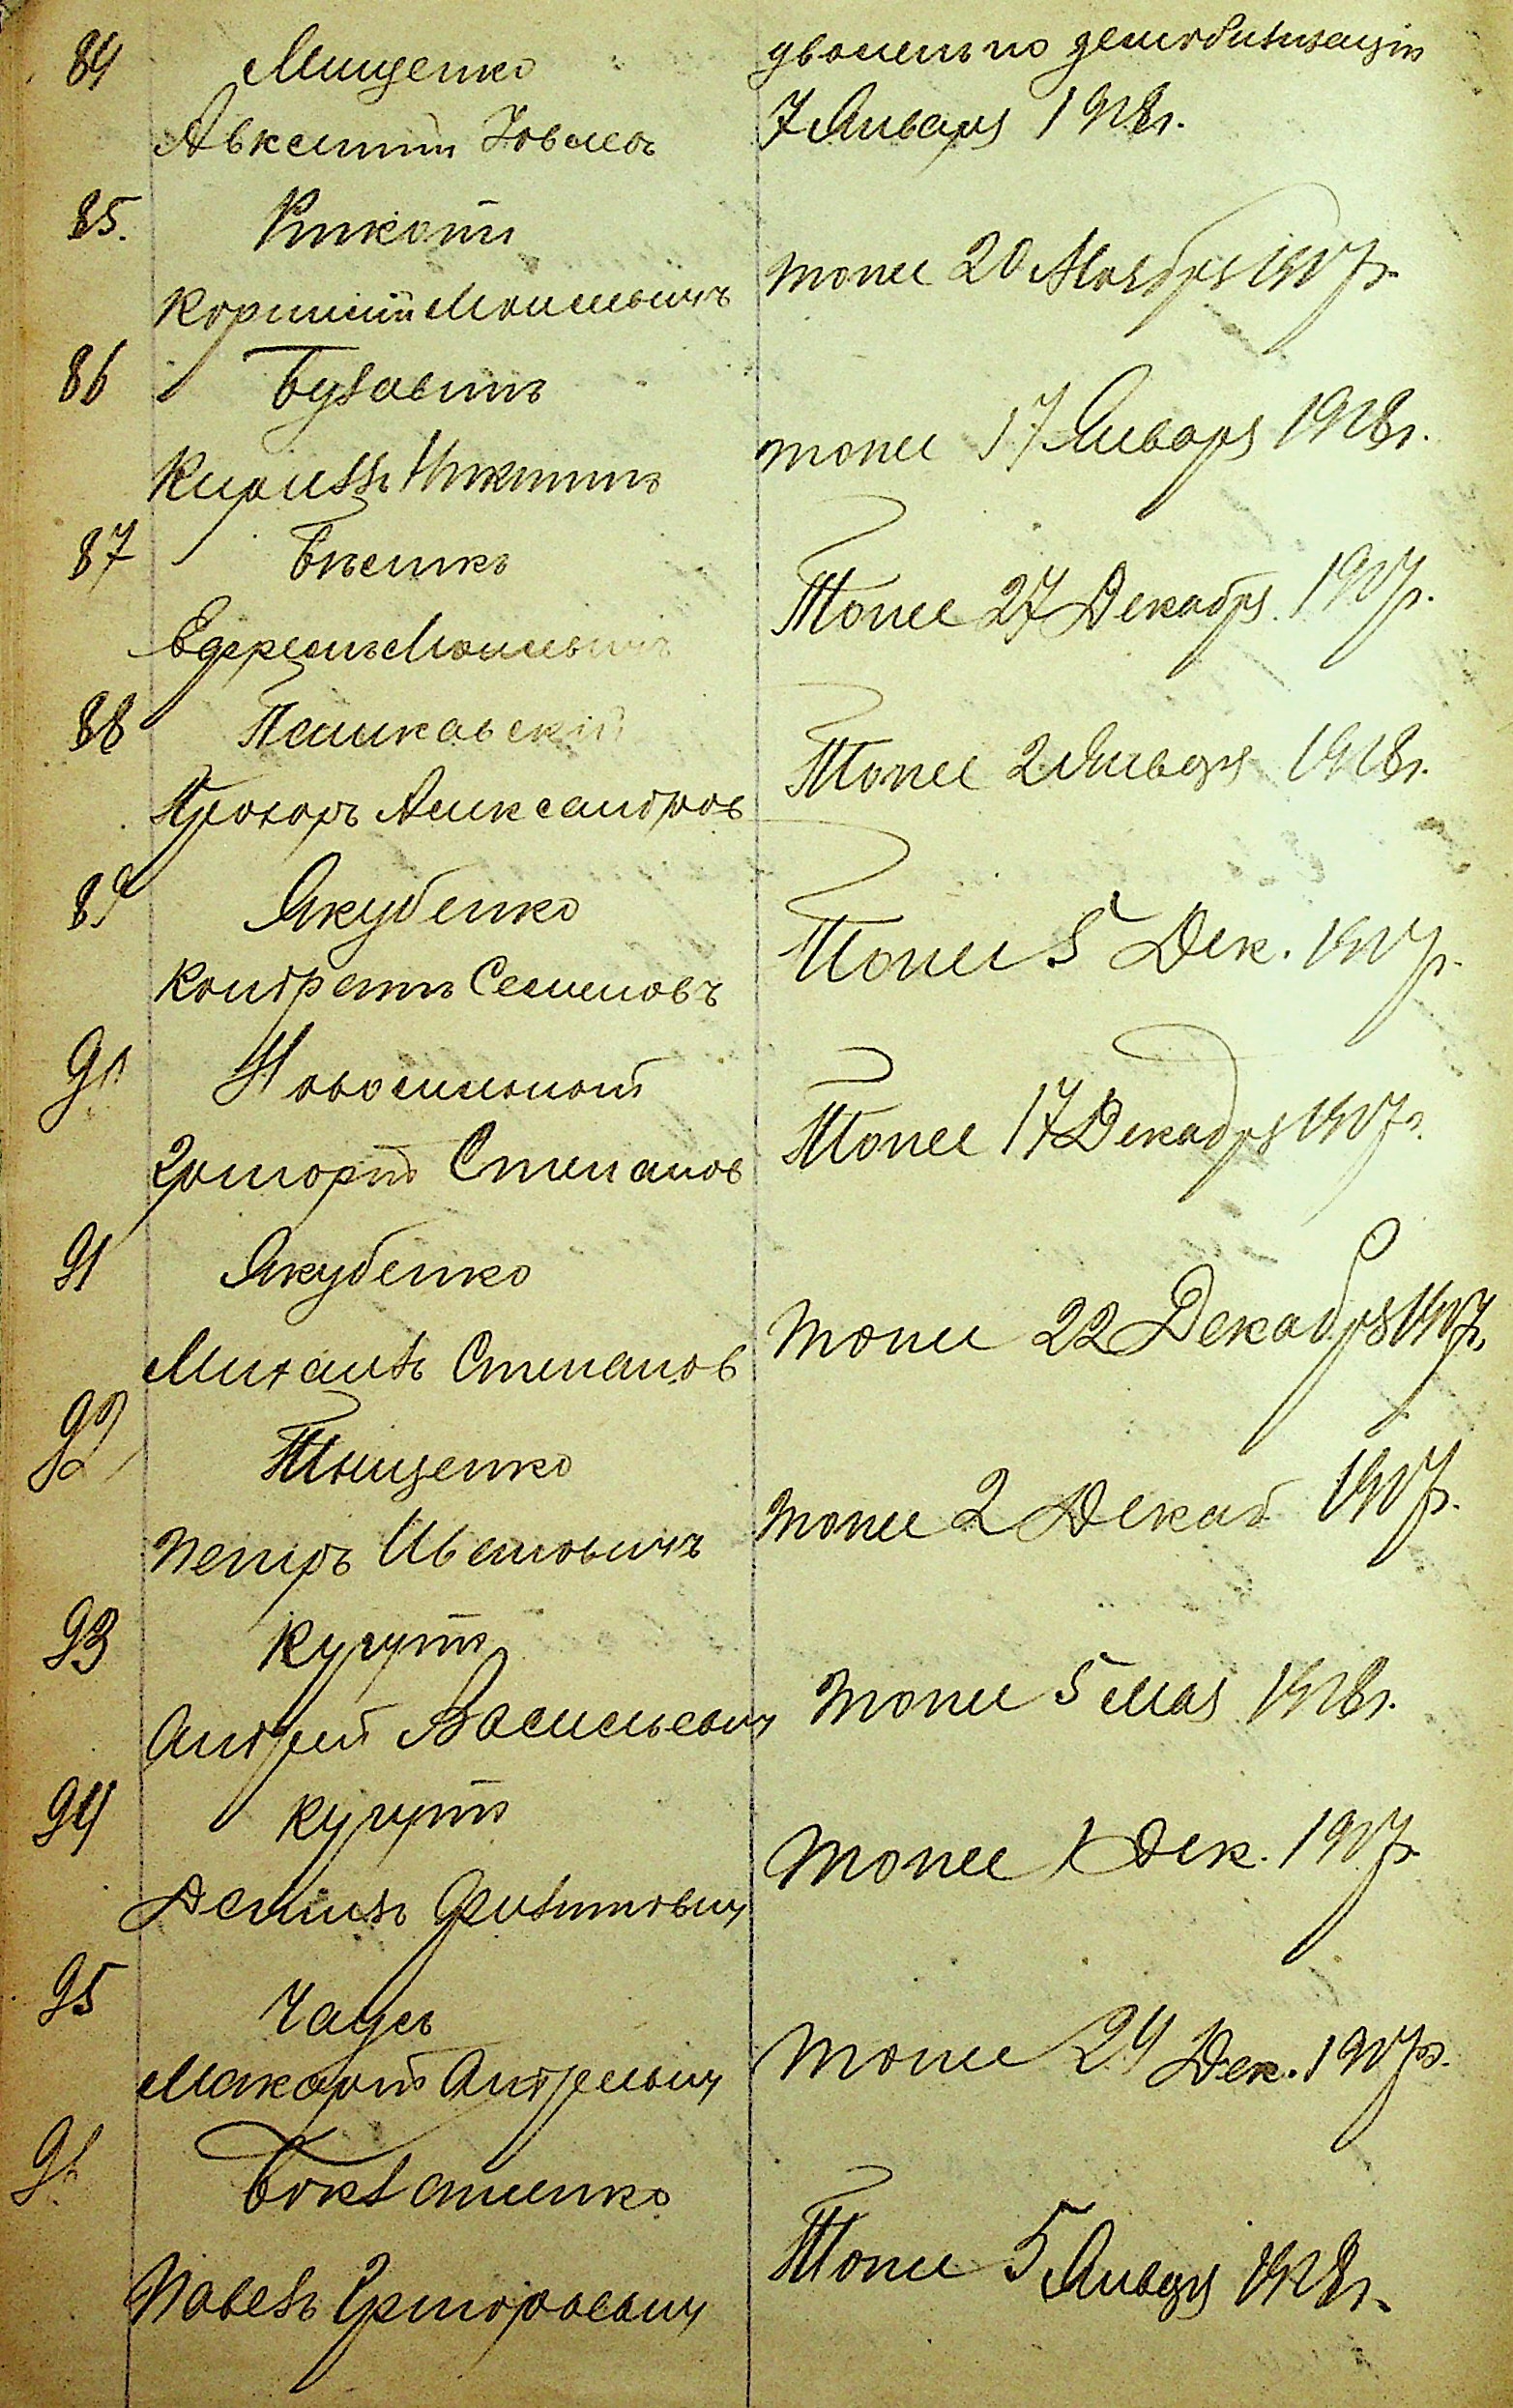 84 Мищенко
уволенъ по демобилизаціи
Авксентий Іовлевъ
7 Января 1918г.
85. Кикоть
Корнилій Моисеевичъ
тоже 20 Ноября 1917г.
86 Бугаевъ
тоже 17 Января 1918г.
Кириллъ Никитинъ
87
Тоже 27 Декабря. 1917г.
Ефремъ Моисеевичъ
88 Пашковскій
Тоже 2 Января 1918г.
Прохоръ Александров
89 Якубенко
Тоже 5 Дек. 1917г.
Кондратъ Семеновъ
90
Тоже 17 Декабря 1917г.
Григорій Степанов
91 Якубенко
тоже 22 Декабря 1917г.
Михаилъ Степанов
92 Тищенко
тоже 2 Декаб 1917г.
Петръ Ивановичъ
93 Кугутъ
Андрей Васильевич
тоже 5 мая 1918г.
94 Кугутъ
тоже 1 Дек. 1917г.
Даниилъ Филиппович
95 Чацъ
тоже 24 Дек. 1917г.
Макарій Андреевич
96
Тоже 5 Января 1918г.
Павелъ Григорьевич